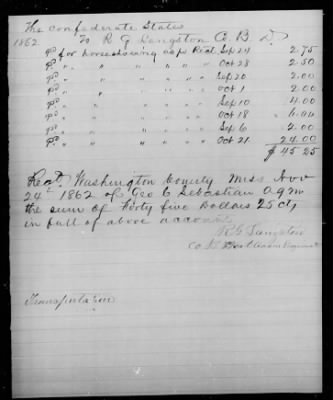 The Confederate States
1862 To R G Langston Co. B Dr
pd for horseshoeing as pr Rect Sep 24 2.75
pd " " " " " Oct 28 2.50
pd " " " " " Sep 20 2.00
pd " " " " " Oct 1 2.00
pd " " " " " Sep 10 4.00
pd " " " " " Oct 18 6.00
pd " " " " " Sep 6 2.00
pd " " " " " Oct 21 24.00
$ 45 25
Recd. Washington County Miss Nov
24th 1862 of Geo C Sebastian a q m
the sum of Forty five Dollars 25 cts
in full of above account
R G Langston
Co B
Transportation